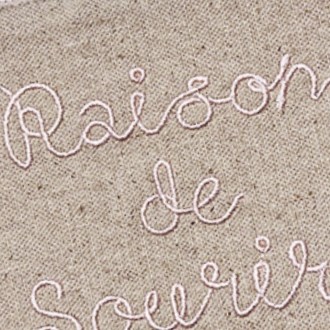 Raison
de
Sourir